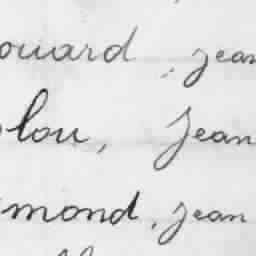 ouard, jean
lou, Jean
mond, jean